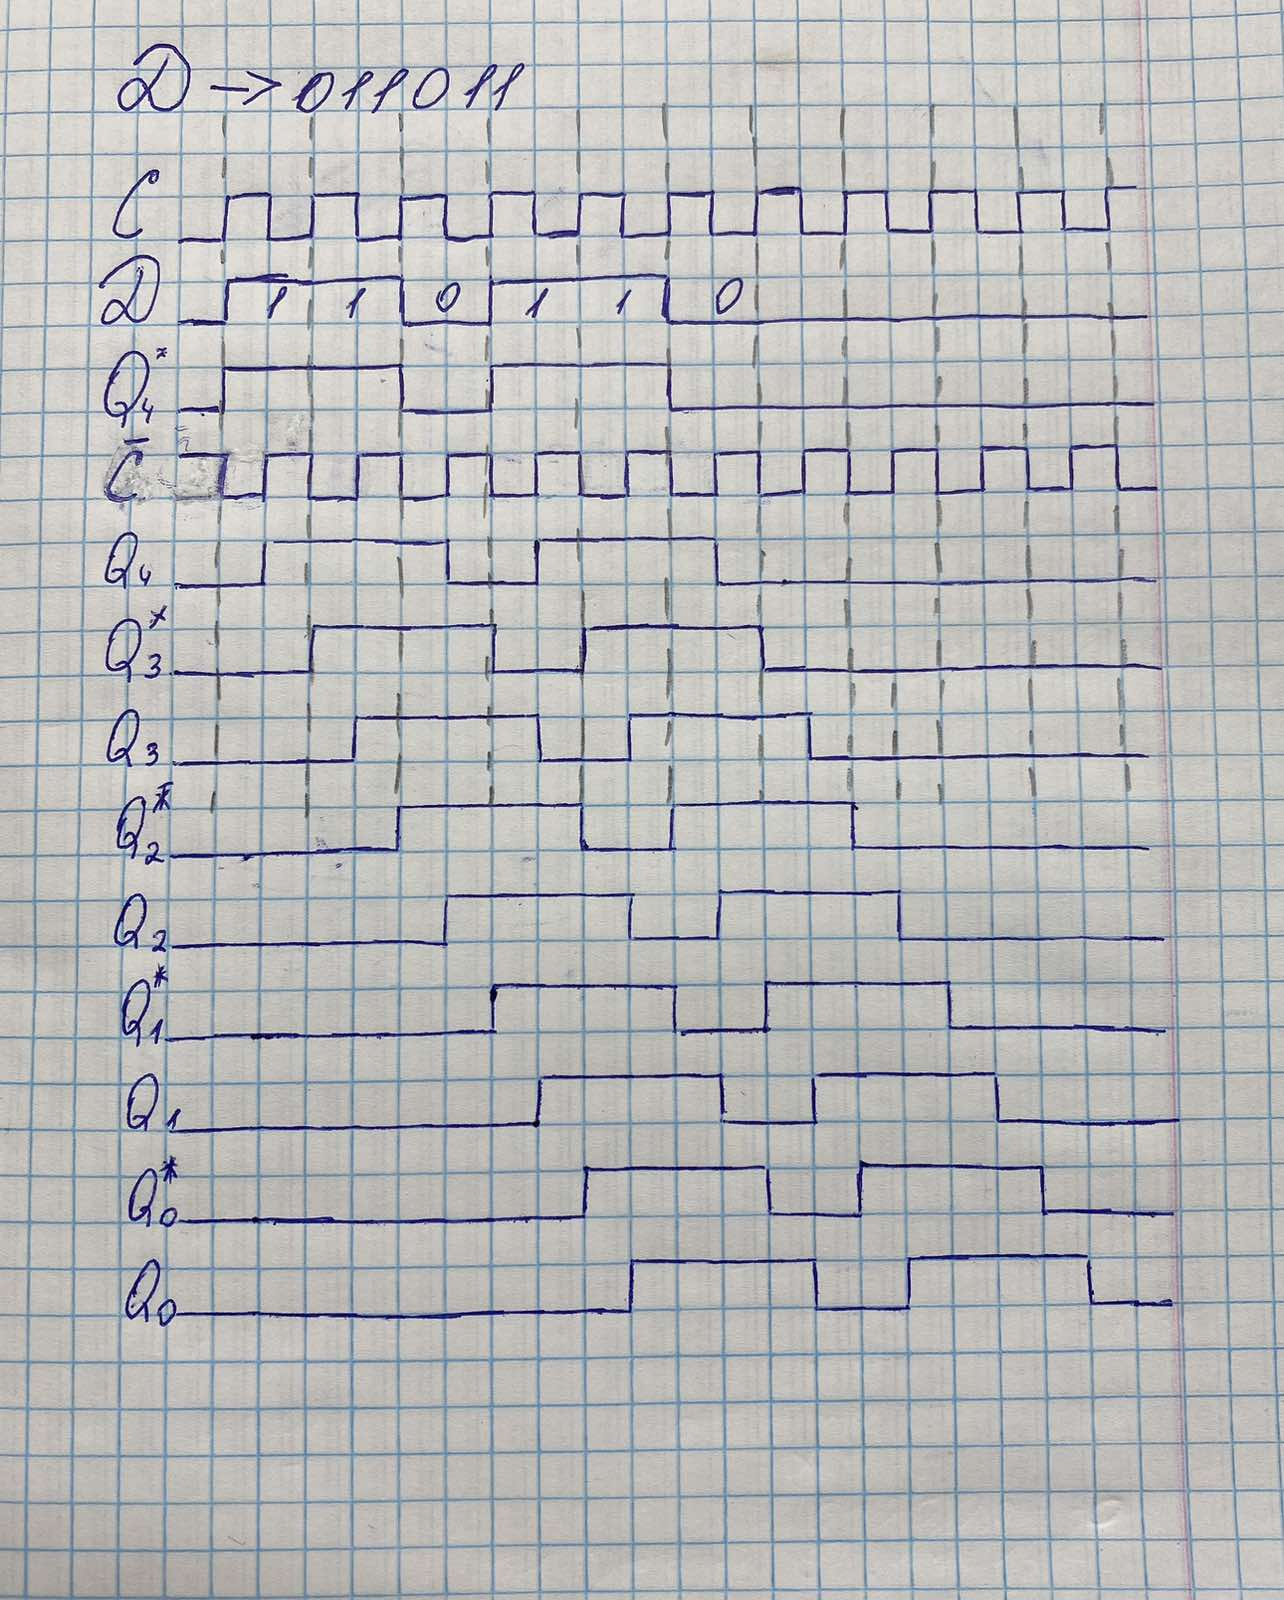 D → 011011
C
D 1 1 0 1 1 0
Q₄*
C̄
Q₄
Q₃*
Q₃
Q₂*
Q₂
Q₁*
Q₁
Q₀*
Q₀